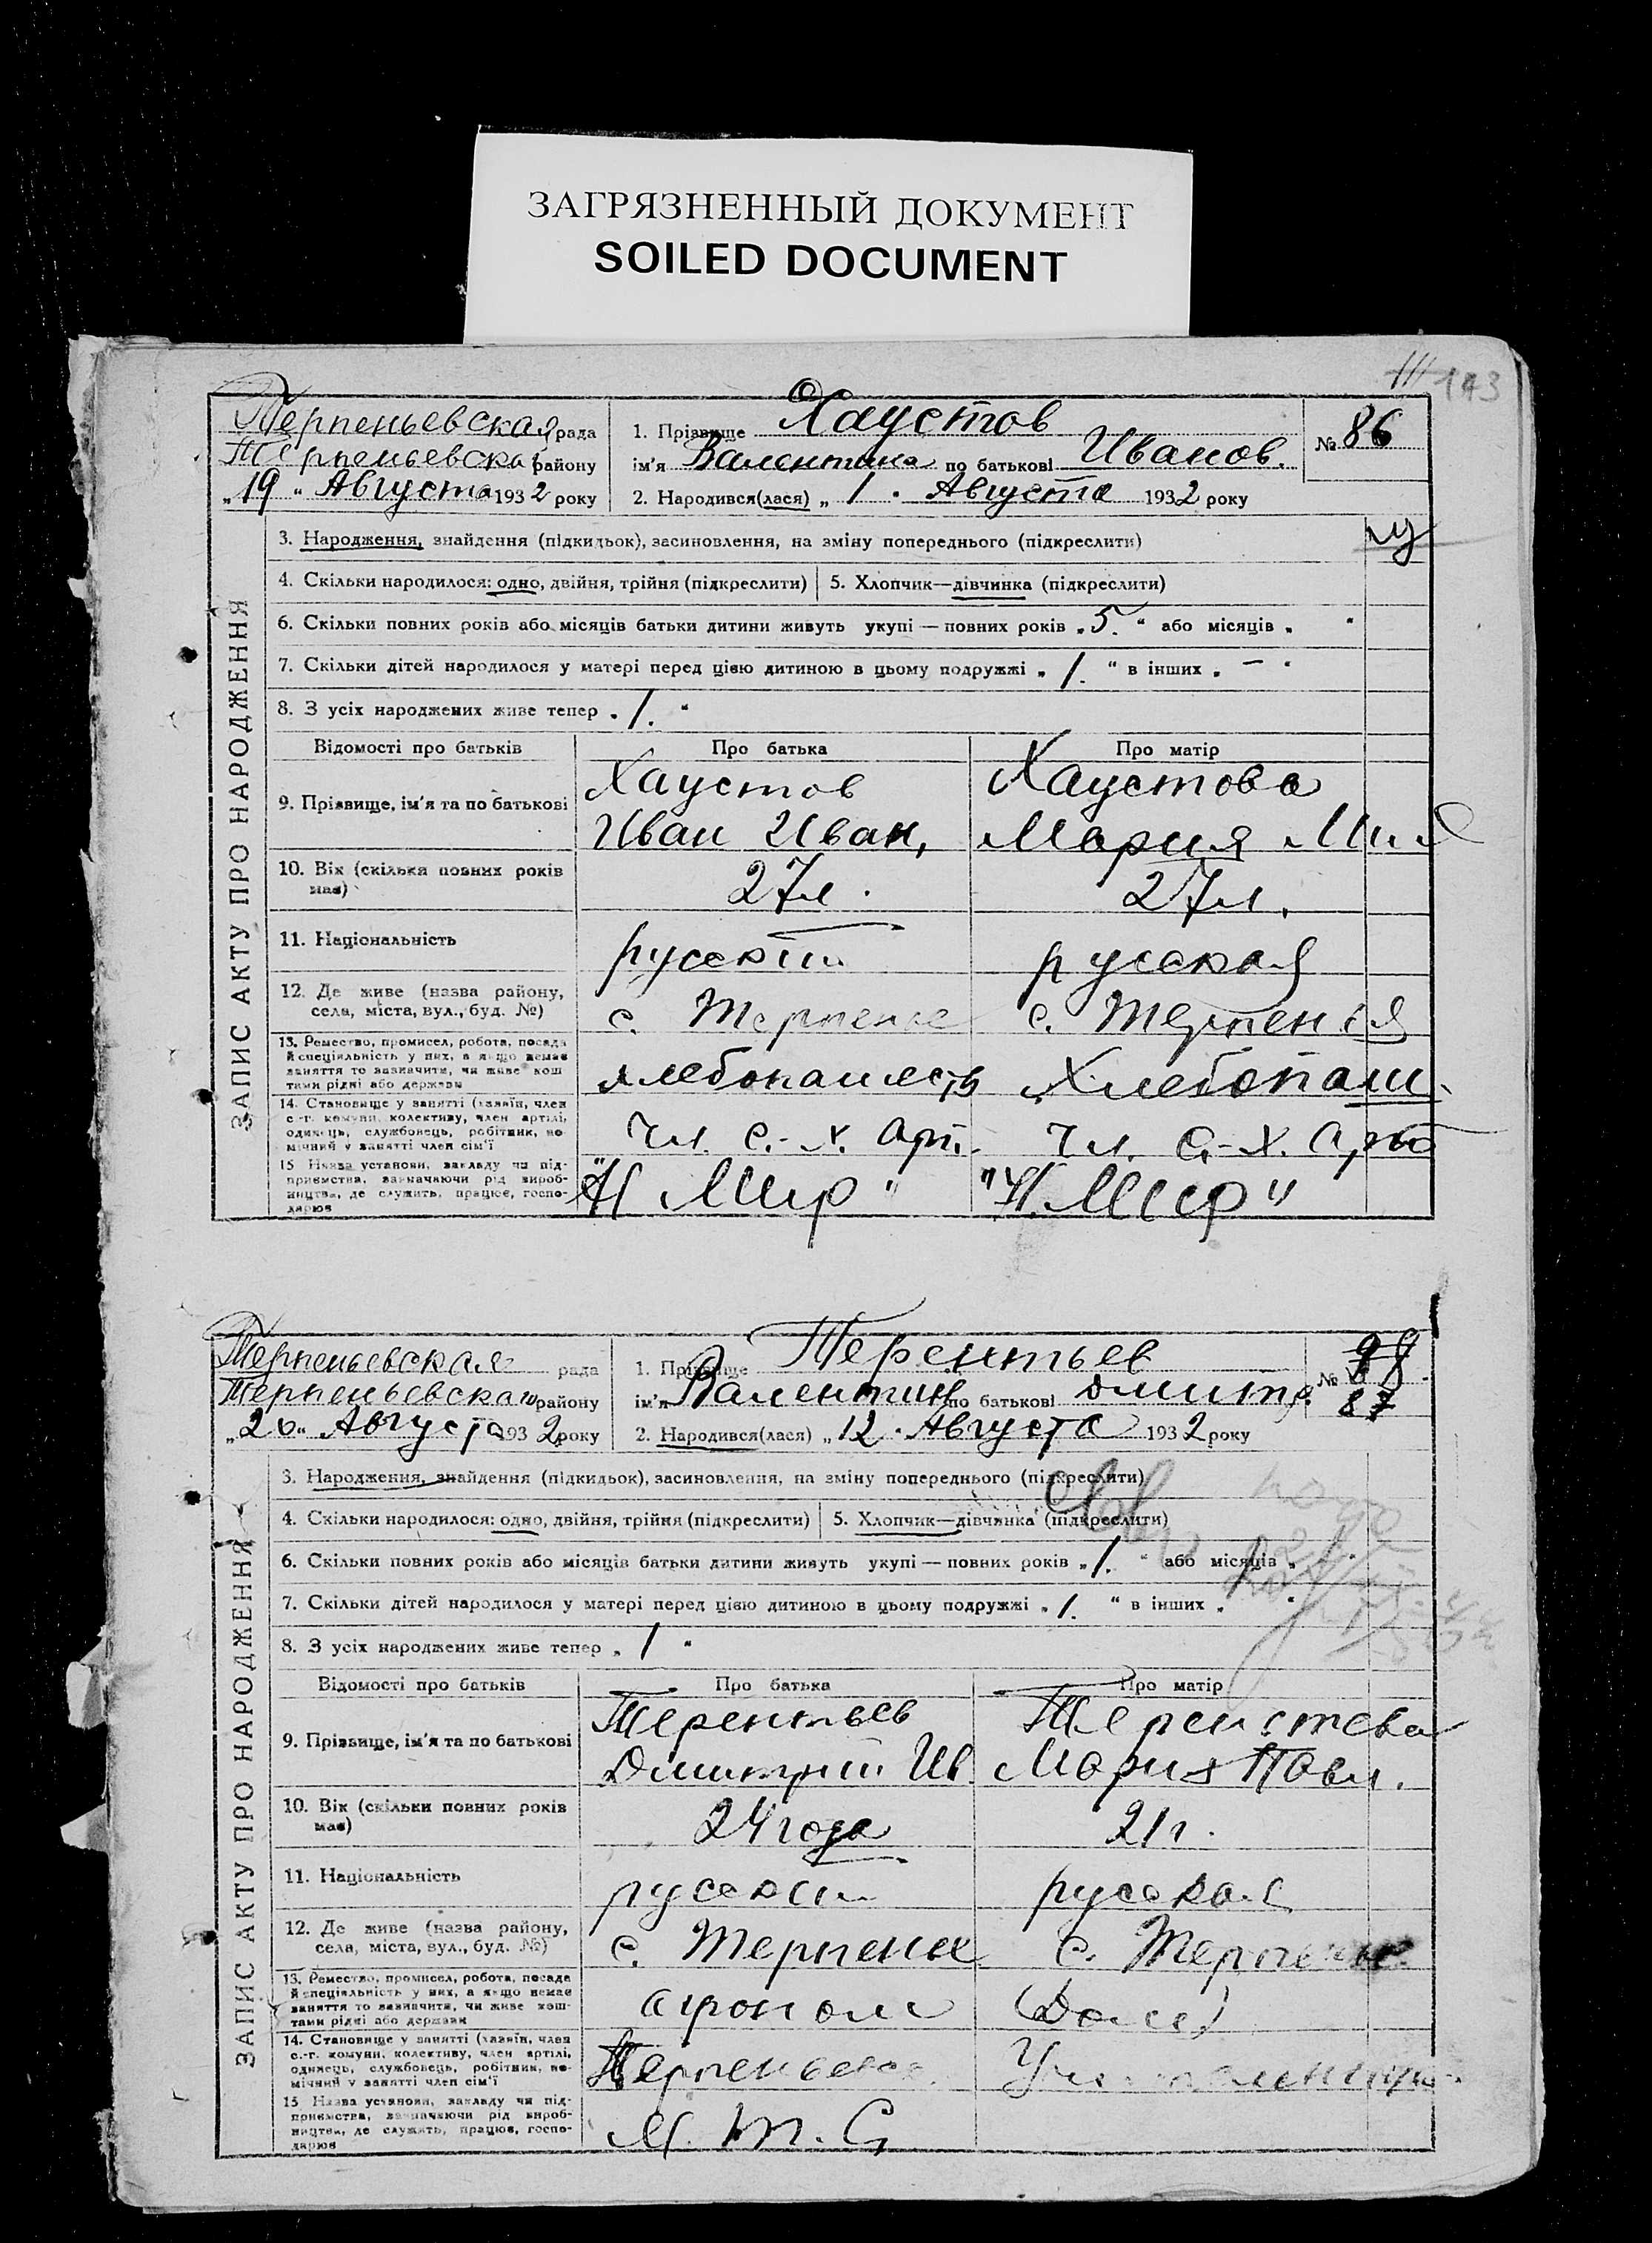 ЗАГРЯЗНЕННЫЙ ДОКУМЕНТ
SOILED DOCUMENT
111 143
ЗАПИС АКТУ ПРО НАРОДЖЕННЯ
Терпеньевская рада
Терпеньевска району
„19“ Августа 1932 року
1. Прізвище Хаустов
ім'я Валентина по батькові Иванов.
2. Народився(лася) „1. Августа 1932 року
№ 86
3. Народження, знайдення (підкидьок), засиновлення, на зміну попереднього (підкреслити)
4. Скільки народилося: одно, двійня, трійня (підкреслити) 5. Хлопчик—дівчинка (підкреслити)
6. Скільки повних років або місяців батьки дитини живуть укупі — повних років „5.“ або місяців „ “
7. Скільки дітей народилося у матері перед цією дитиною в цьому подружжі „1.“ в інших „–“
8. З усіх народжених живе тепер „1.“
Відомості про батьків Про батька Про матір
9. Прізвище, ім'я та по батькові
Хаустов Хаустова
Иван Иван, Мария Мих
10. Вік (скільки повних років має) 27л. 27л.
11. Національність русский русская
12. Де живе (назва району, села, міста, вул., буд. №) с. Терпенье с. Терпенья
13. Ремество, промисел, робота, посада й спеціяльність у них, а якщо немає заняття то зазначити, чи живе коштами рідні або держави
хлебопашест Хлебопаш.
14. Становище у занятті (хазяїн, член с.-г. комуни, колективу, член артілі, одинець, службовець, робітник, помічний у занятті член сім'ї
Чл. с.-х. арт. Чл. с.-х. арт
15 Назва установи, закладу чи підприємства, зазначаючи рід виробництва, де служить, працює, господарює
"Н Мир" "Н. Мир"
ЗАПИС АКТУ ПРО НАРОДЖЕННЯ
Терпеньевская рада
Терпеньевская району
„20“ Августа 1932 року
1. Прізвище Терентьев
ім'я Валентин по батькові Дмитр.
2. Народився(лася) „12. Августа 1932 року
№ 87
3. Народження, знайдення (підкидьок), засиновлення, на зміну попереднього (підкреслити)
4. Скільки народилося: одно, двійня, трійня (підкреслити) 5. Хлопчик—дівчинка (підкреслити)
6. Скільки повних років або місяців батьки дитини живуть укупі — повних років „1.“ або місяців „ “
7. Скільки дітей народилося у матері перед цією дитиною в цьому подружжі „1.“ в інших „ “
8. З усіх народжених живе тепер „1“
Відомості про батьків Про батька Про матір
9. Прізвище, ім'я та по батькові
Терентьев Терентева
Дмитрий Ив. Мария Павл.
10. Вік (скільки повних років має) 24 года 21 г.
11. Національність русский русская
12. Де живе (назва району, села, міста, вул., буд. №) с. Терпенье с. Терпенье
13. Ремество, промисел, робота, посада й спеціяльність у них, а якщо немає заняття то зазначити, чи живе коштами рідні або держави
агроном
14. Становище у занятті (хазяїн, член с.-г. комуни, колективу, член артілі, одинець, службовець, робітник, помічний у занятті член сім'ї
15 Назва установи, закладу чи підприємства, зазначаючи рід виробництва, де служить, працює, господарює
М. Т. С